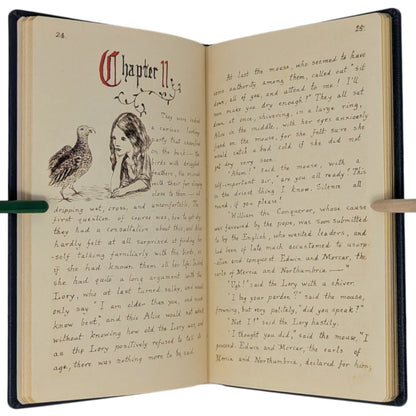 24.
Chapter II
They were indeed
a curious looking
party that assembled
on the bank — the
birds with draggled
feathers, the animals
with their fur clinging
close to them — all
dripping wet, cross, and uncomfortable. The
first question of course was, how to get dry:
they had a consultation about this, and Alice
hardly felt at all surprised at finding her-
-self talking familiarly with the birds, as
if she had known them all her life. Indeed
she had quite a long argument with the
Lory, who at last turned sulky, and would
only say "I am older than you, and must
know best," and this Alice would not admit
without knowing how old the Lory was, and
as the Lory positively refused to tell its
age, there was nothing more to be said.
25.
At last the mouse, who seemed to have
some authority among them, called out "sit
down, all of you, and attend to me! I'll
soon make you dry enough!" They all sat
down at once, shivering, in a large ring,
Alice in the middle, with her eyes anxiously
fixed on the mouse, for she felt sure she
would catch a bad cold if she did not
get dry very soon.
"Ahem!" said the mouse, with a
self-important air, "are you all ready? This
is the driest thing I know. Silence all
round, if you please!
"William the Conqueror, whose cause
was favoured by the pope, was soon submitted
to by the English, who wanted leaders, and
had been of late much accustomed to usurp-
-ation and conquest. Edwin and Morcar, the
earls of Mercia and Northumbria —"
"Ugh!" said the Lory with a shiver.
"I beg your pardon?" said the mouse,
frowning, but very politely, "did you speak?"
"Not I!" said the Lory hastily.
"I thought you did," said the mouse, "I
proceed. Edwin and Morcar, the earls of
Mercia and Northumbria, declared for him;